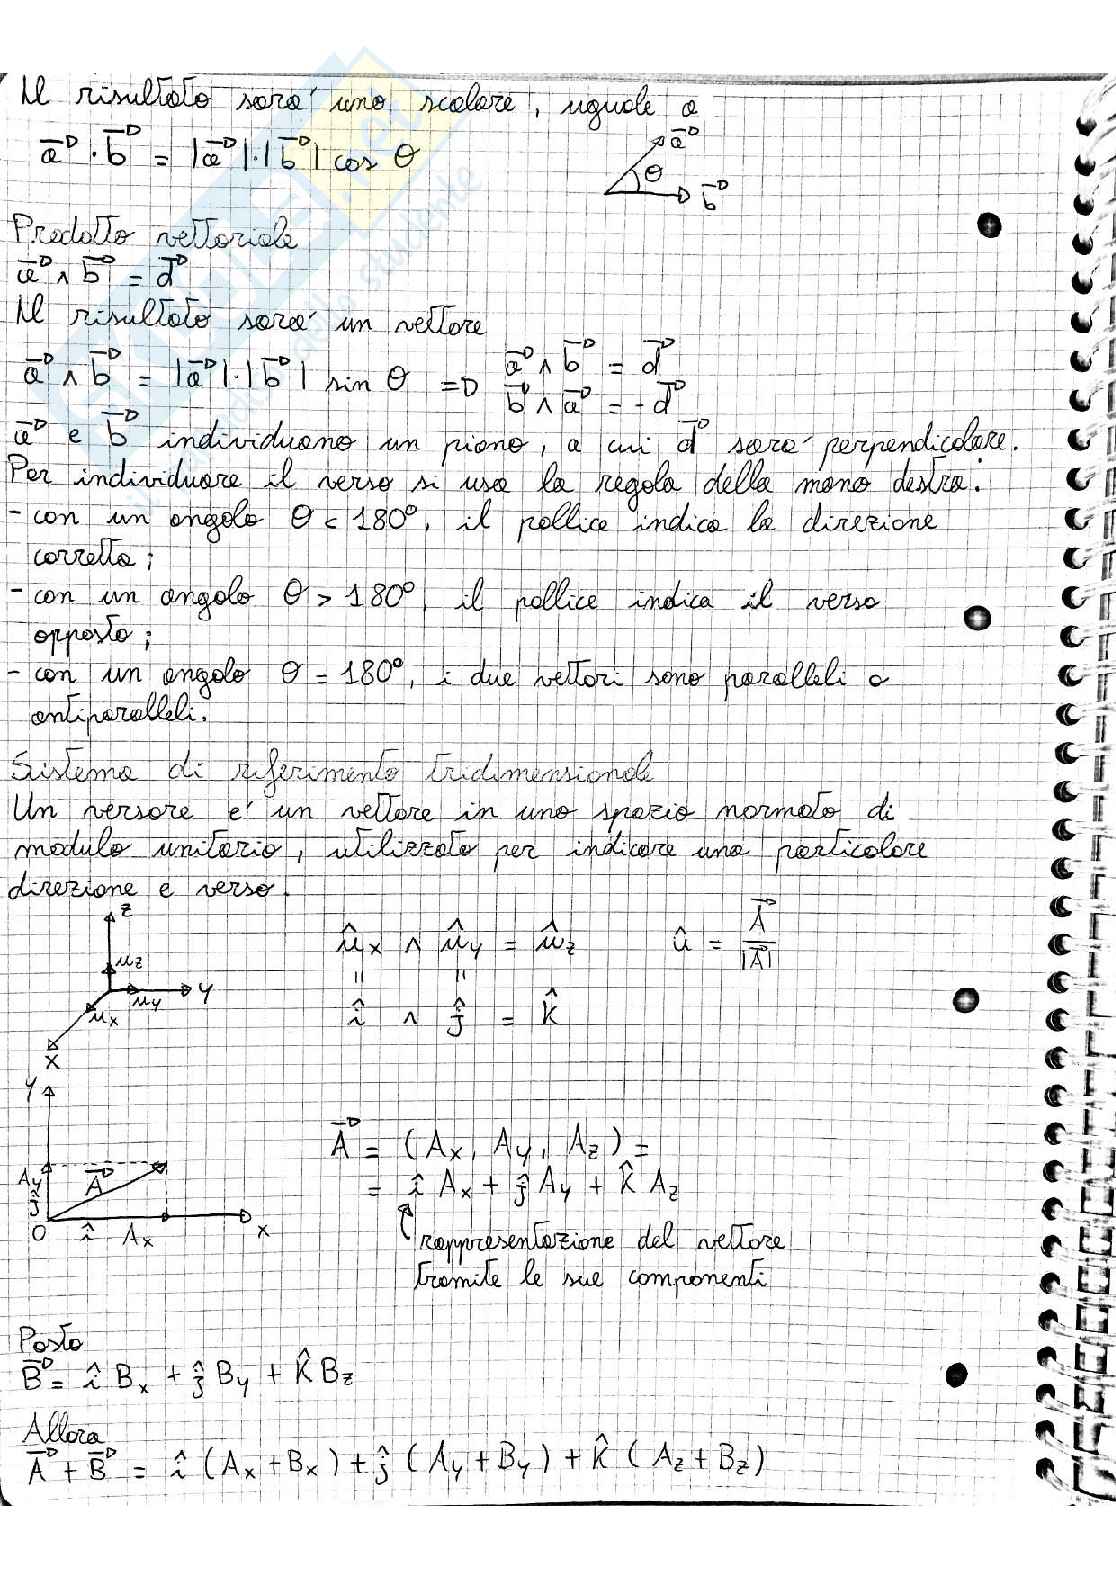 Il risultato sarà uno scalare, uguale a
a⃗ · b⃗ = |a⃗|·|b⃗| cos θ
a⃗
θ
b⃗
Prodotto vettoriale
a⃗ ∧ b⃗ = d⃗
Il risultato sarà un vettore
a⃗ ∧ b⃗ = |a⃗|·|b⃗| sin θ => a⃗ ∧ b⃗ = d⃗
b⃗ ∧ a⃗ = - d⃗
a⃗ e b⃗ individuano un piano, a cui d⃗ sarà perpendicolare.
Per individuare il verso si usa la regola della mano destra:
- con un angolo θ < 180°, il pollice indica la direzione
corretta;
- con un angolo θ > 180°, il pollice indica il verso
opposto;
- con un angolo θ = 180°, i due vettori sono paralleli o
antiparalleli.
Sistema di riferimento tridimensionale
Un versore è un vettore in uno spazio normato di
modulo unitario, utilizzato per indicare una particolare
direzione e verso.
z
uz
uy
y
ux
x
ûx ∧ ûy = ûz
û = A⃗ / |A⃗|
= =
î ∧ ĵ = k̂
y
Ay
ĵ
A⃗
O
î
Ax
x
A⃗ = (Ax, Ay, Az) =
= î Ax + ĵ Ay + k̂ Az
rappresentazione del vettore
tramite le sue componenti
Posto
B⃗ = î Bx + ĵ By + k̂ Bz
Allora
A⃗ + B⃗ = î (Ax + Bx) + ĵ (Ay + By) + k̂ (Az + Bz)